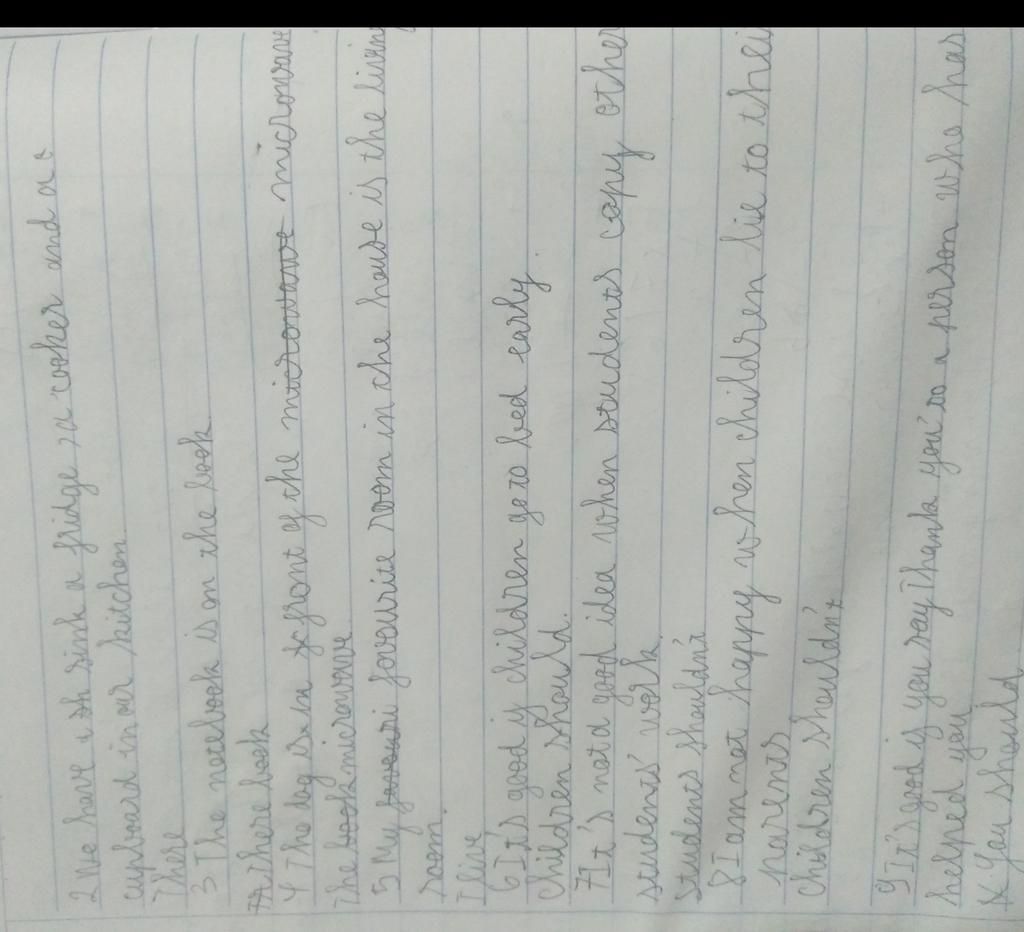 2 We have a sink a fridge, a cooker and a c
cupboard in our kitchen.
There
3 The notebook is on the book
There book
4 The dog is in front of the microwave microwave.
The book microwave
5 My favouri favourite room in the house is the living
room.
I live
6 It's good if children go to bed early.
Children should.
7 It's not a good idea when students copy other
students' work
Students shouldn't
8 I am not happy when children lie to thei
parents
Children shouldn't
9 It's good if you say Thank you to a person who has
helped you
You should